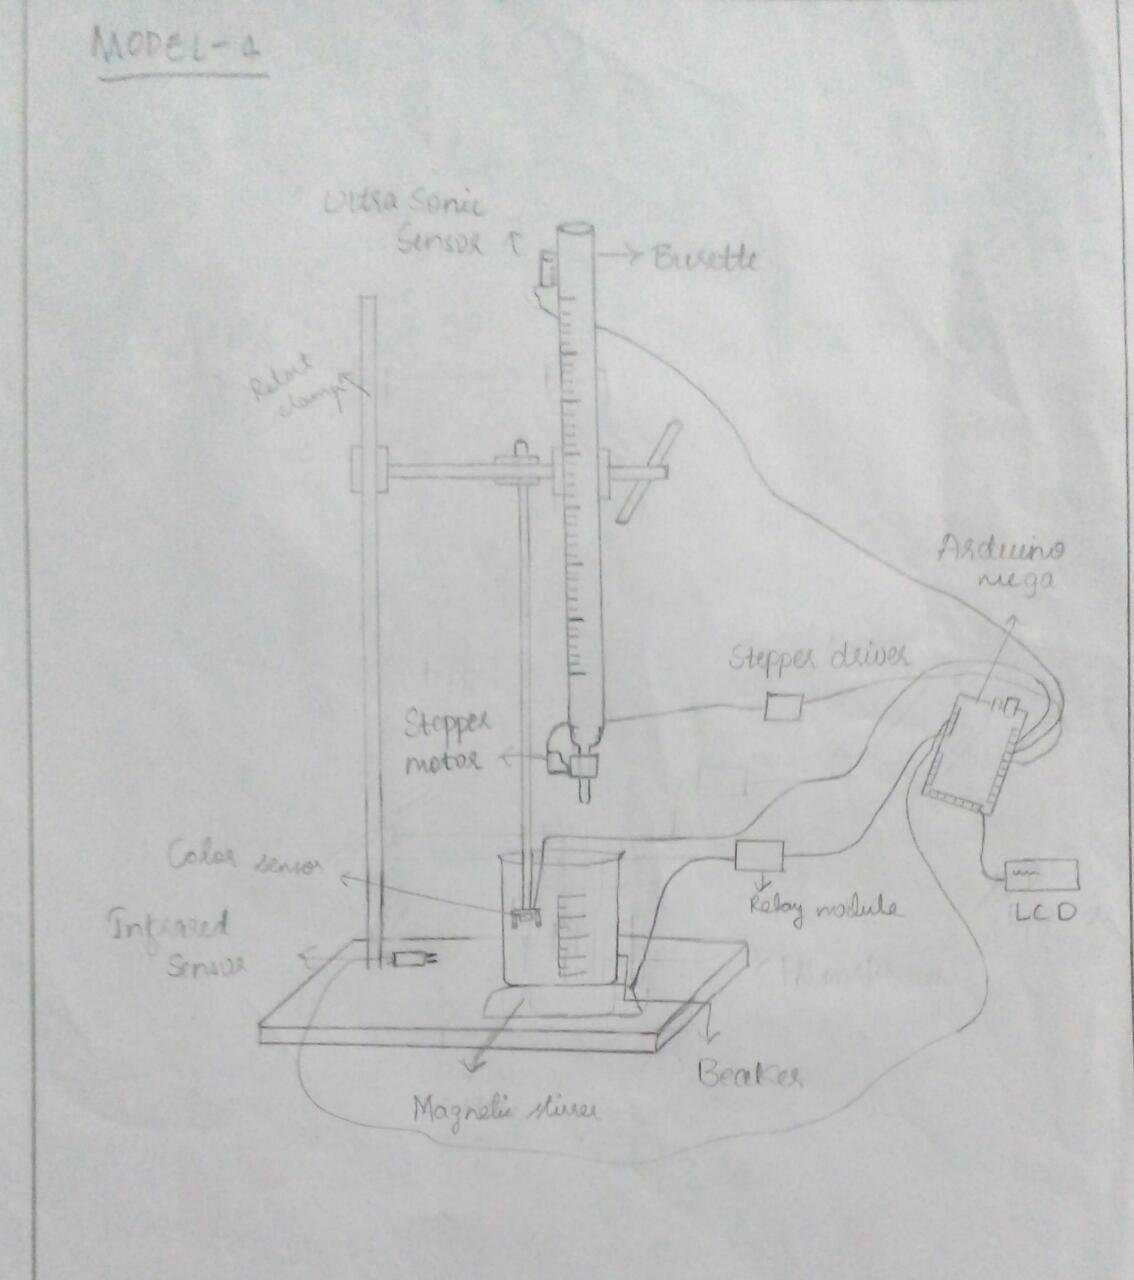 MODEL-1
Ultra Sonic
Sensor
Burette
Retort
clamp
Arduino
mega
Stepper driver
Stepper
motor
Color sensor
Relay module
LCD
Infrared
Sensor
Beaker
Magnetic stirrer